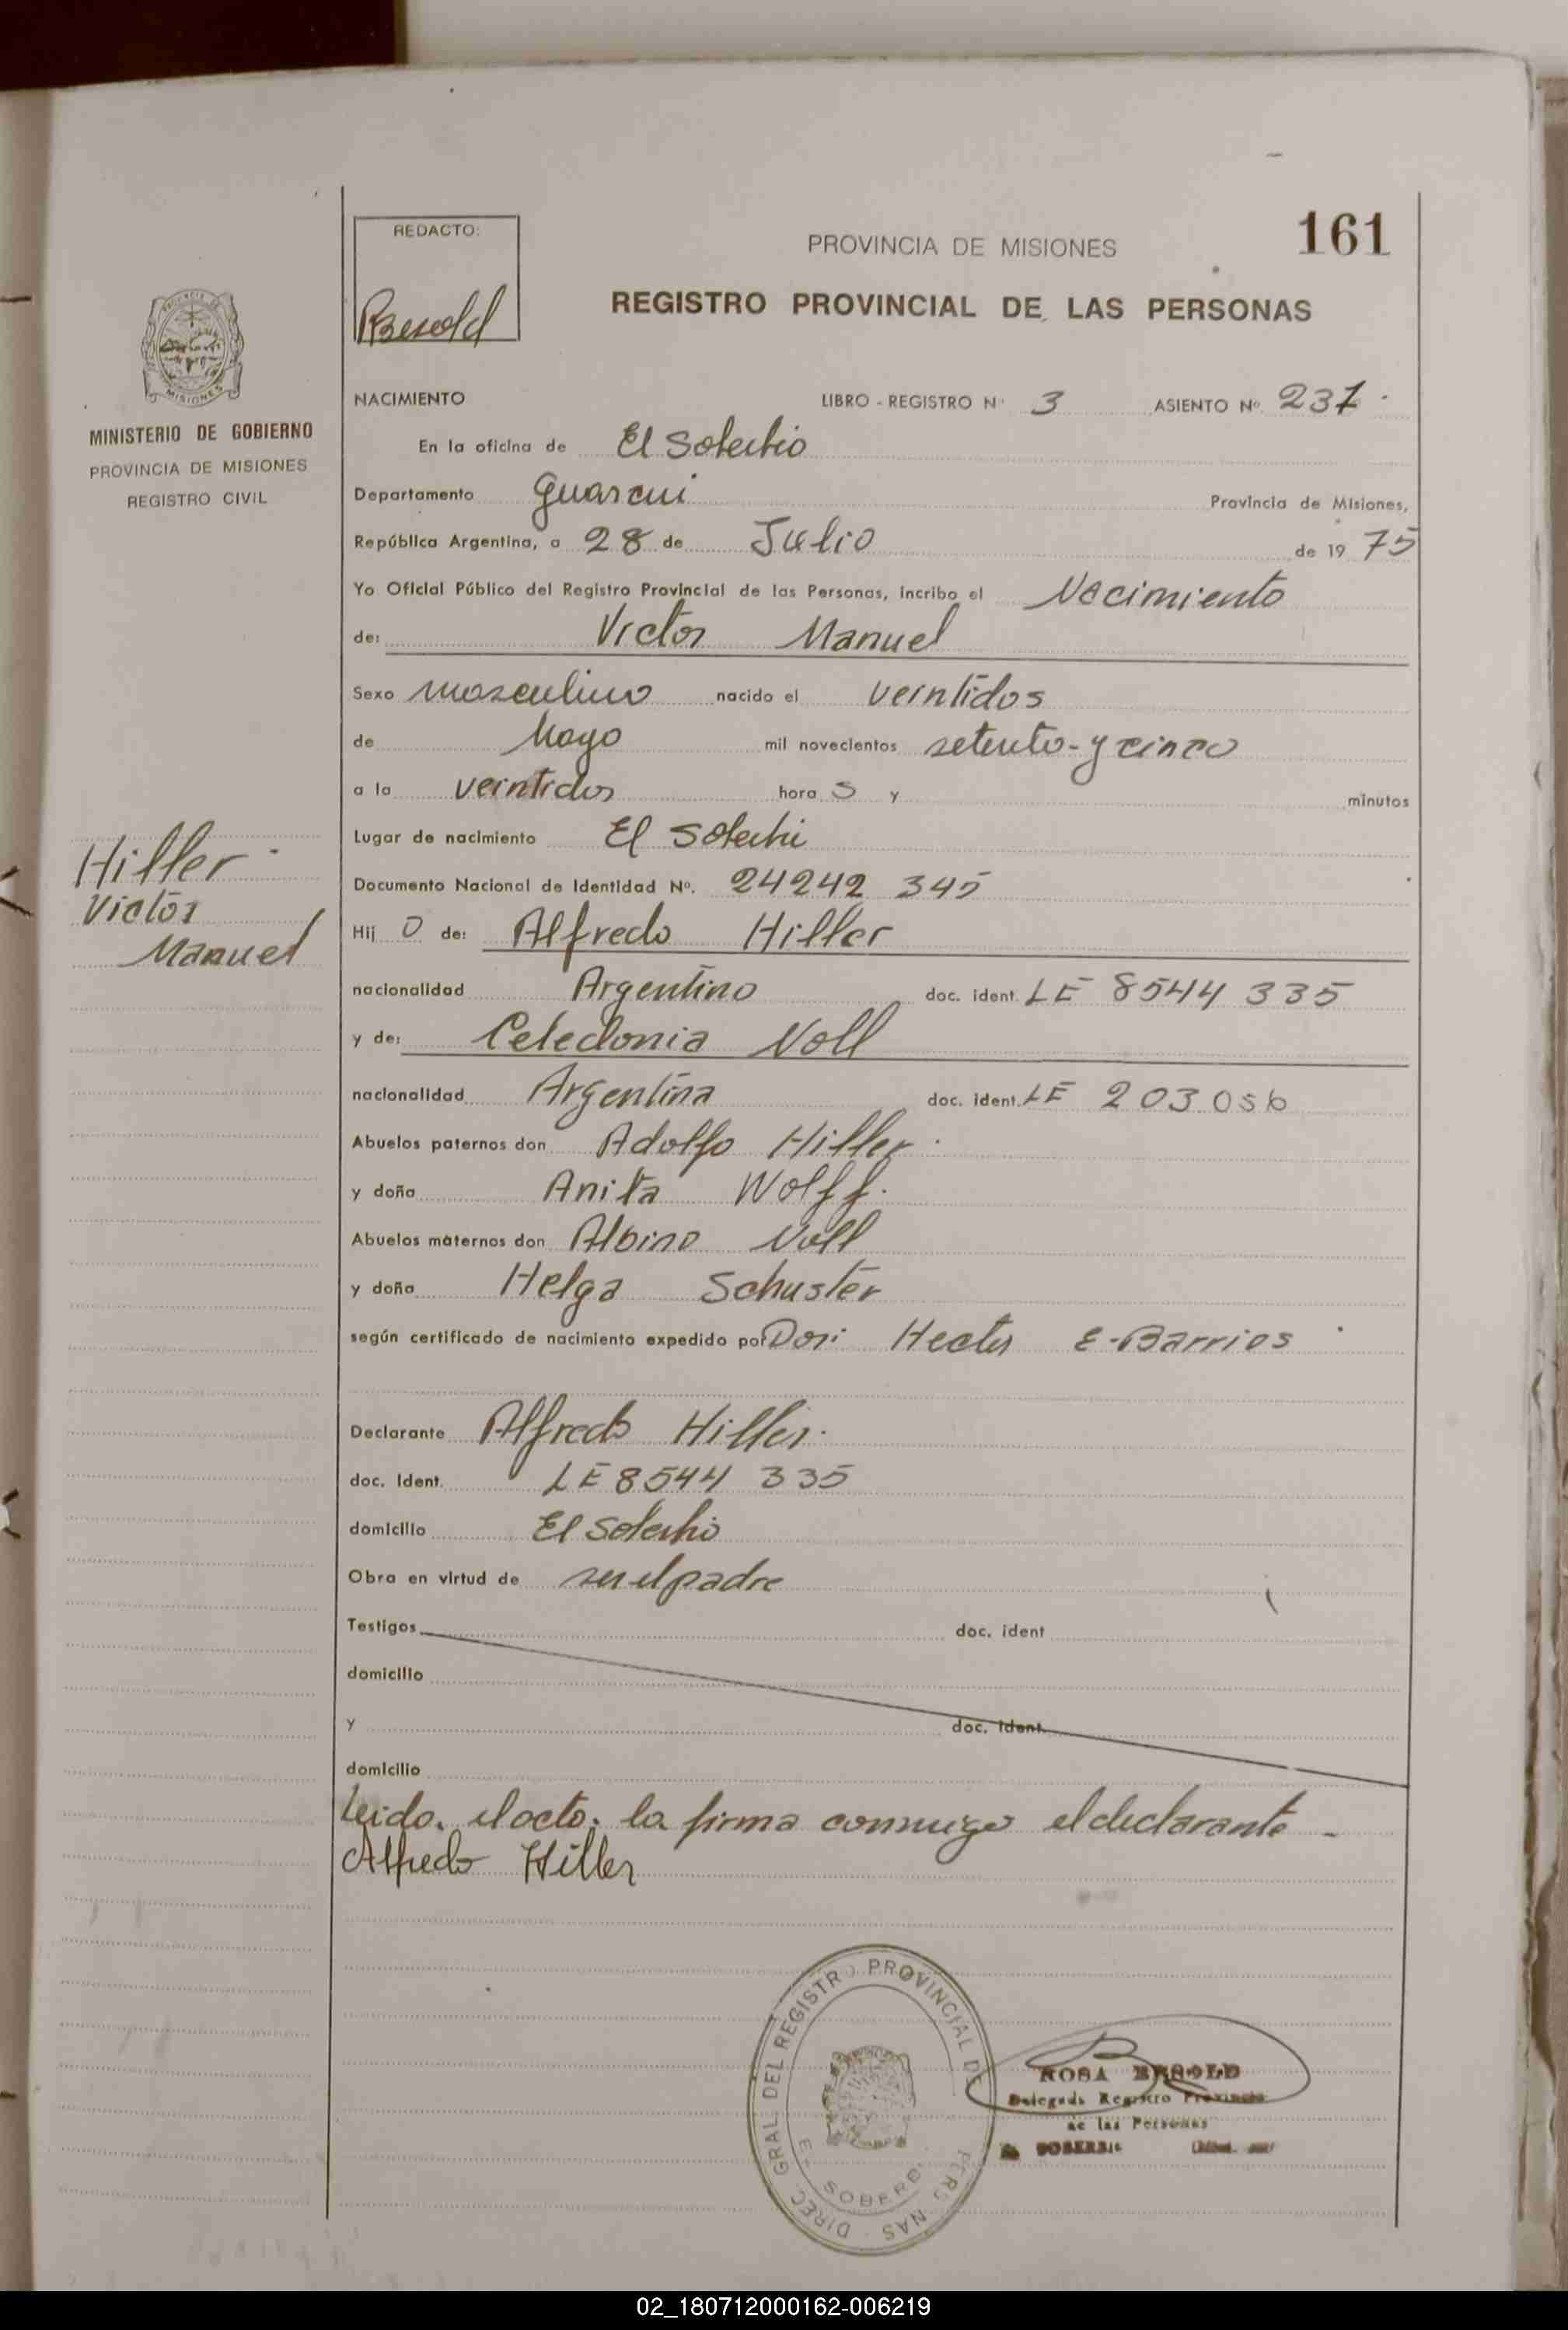 161
REDACTO:
PROVINCIA DE MISIONES
Besold
REGISTRO PROVINCIAL DE LAS PERSONAS
MINISTERIO DE GOBIERNO
PROVINCIA DE MISIONES
REGISTRO CIVIL
NACIMIENTO LIBRO - REGISTRO N° 3 ASIENTO Nº 237
En la oficina de El Soberbio
Departamento Guarani Provincia de Misiones,
República Argentina, a 28 de Julio de 19 75
Yo Oficial Público del Registro Provincial de las Personas, incribo el Nacimiento
de: Victor Manuel
Sexo masculino nacido el veintidos
de Mayo mil novecientos setenta y cinco
a la veintidos hora s y minutos
Lugar de nacimiento El Soberbio
Documento Nacional de Identidad Nº. 24242 345
Hiller
Victor
Manuel
Hij o de: Alfredo Hiller
nacionalidad Argentino doc. ident. LE 8544 335
y de: Celedonia Noll
nacionalidad Argentina doc. ident. LE 203056
Abuelos paternos don Adolfo Hiller
y doña Anita Wolff.
Abuelos maternos don Albino Noll
y doña Helga Schuster
según certificado de nacimiento expedido por Hector E. Barrios
Declarante Alfredo Hiller
doc. Ident. LE 8544 335
domicilio El Soberbio
Obra en virtud de ser el padre
Testigos doc. ident
domicilio
y doc. ident
domicilio
Leido el acto, la firma conmigo el declarante -
Alfredo Hiller
DIREC. GRAL. DEL REGISTRO PROVINCIAL DE PERSONAS
EL SOBERBIO
ROSA BESOLD
Delegada Registro Provincial
de las Personas
SOBERBIO
02_180712000162-006219